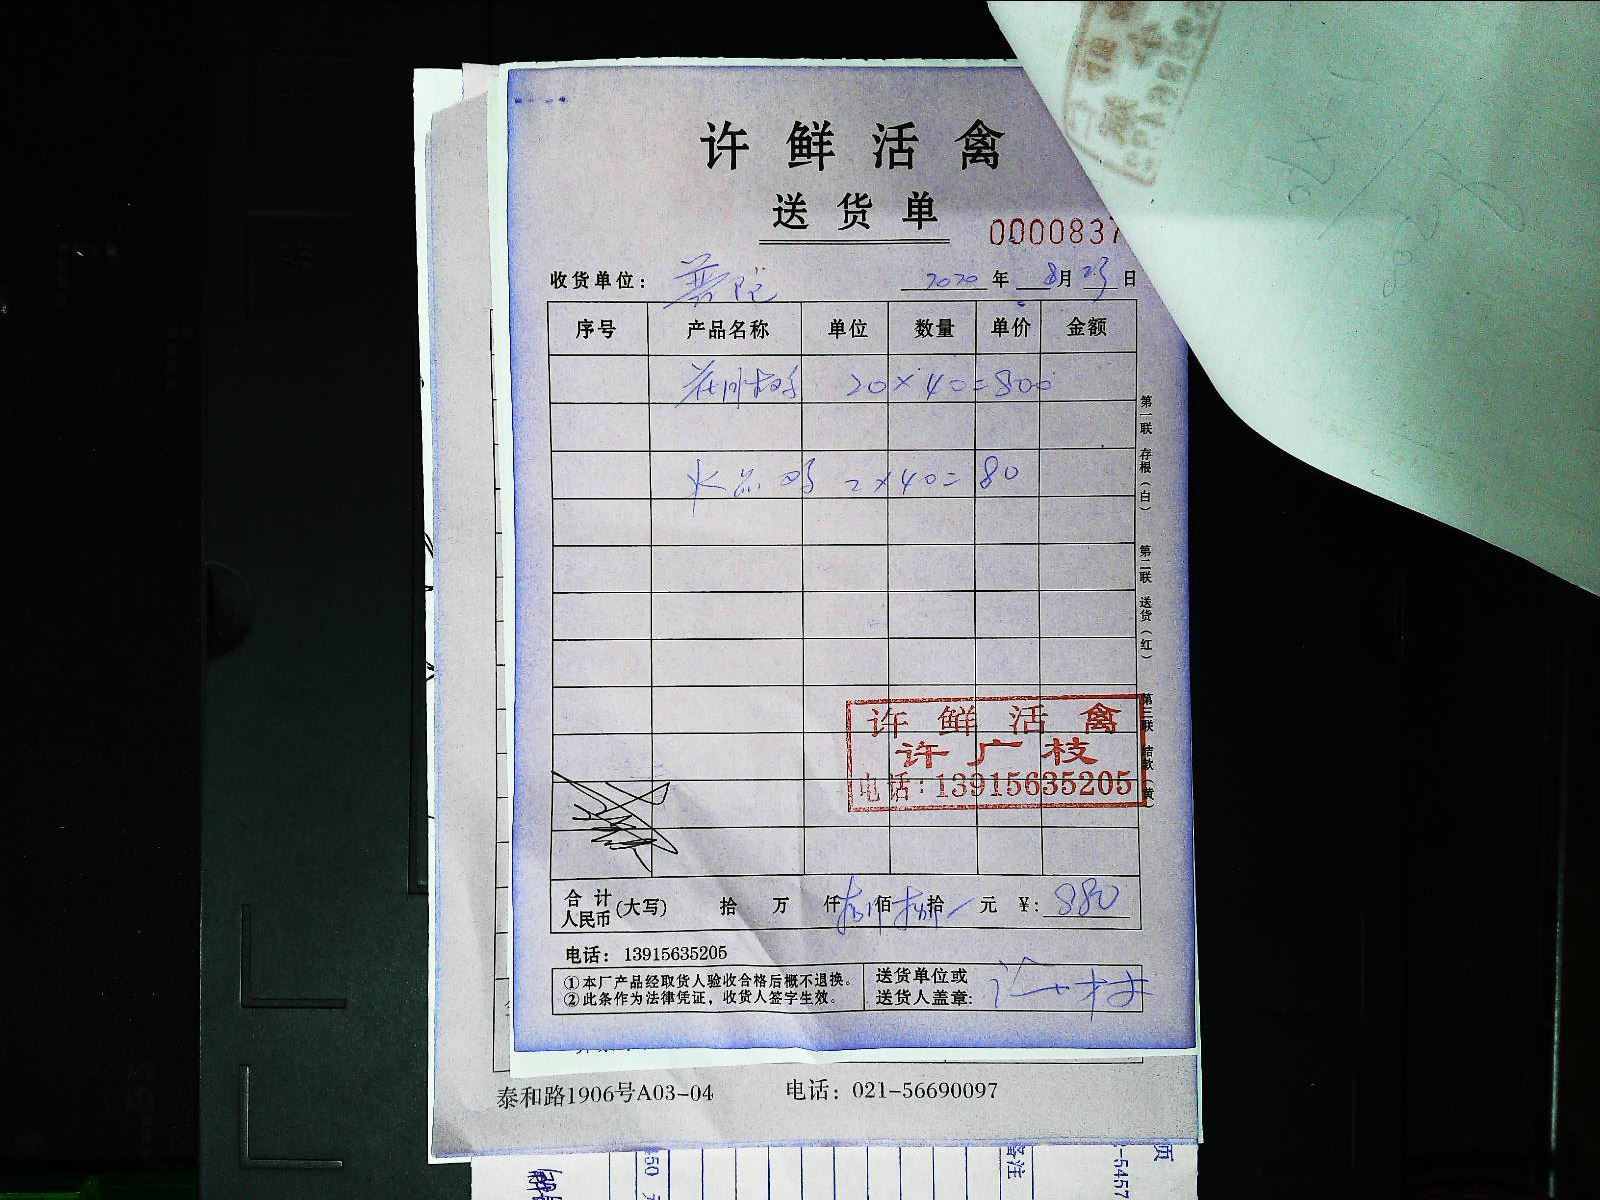 许鲜活禽
送货单
0000837
收货单位: 普陀 2020年8月23日
序号 产品名称 单位 数量 单价 金额
20×40=800
水 2×40=80
第一联 存根（白） 第二联 送货（红） 第三联 结款（黄）
许鲜活禽
许广枝
电话:13915635205
合计人民币(大写) 拾 万 仟 捌佰捌拾 元 ¥: 880
电话: 13915635205
①本厂产品经取货人验收合格后概不退换。
②此条作为法律凭证，收货人签字生效。
送货单位或
送货人盖章:
泰和路1906号A03-04 电话: 021-56690097
备注
页